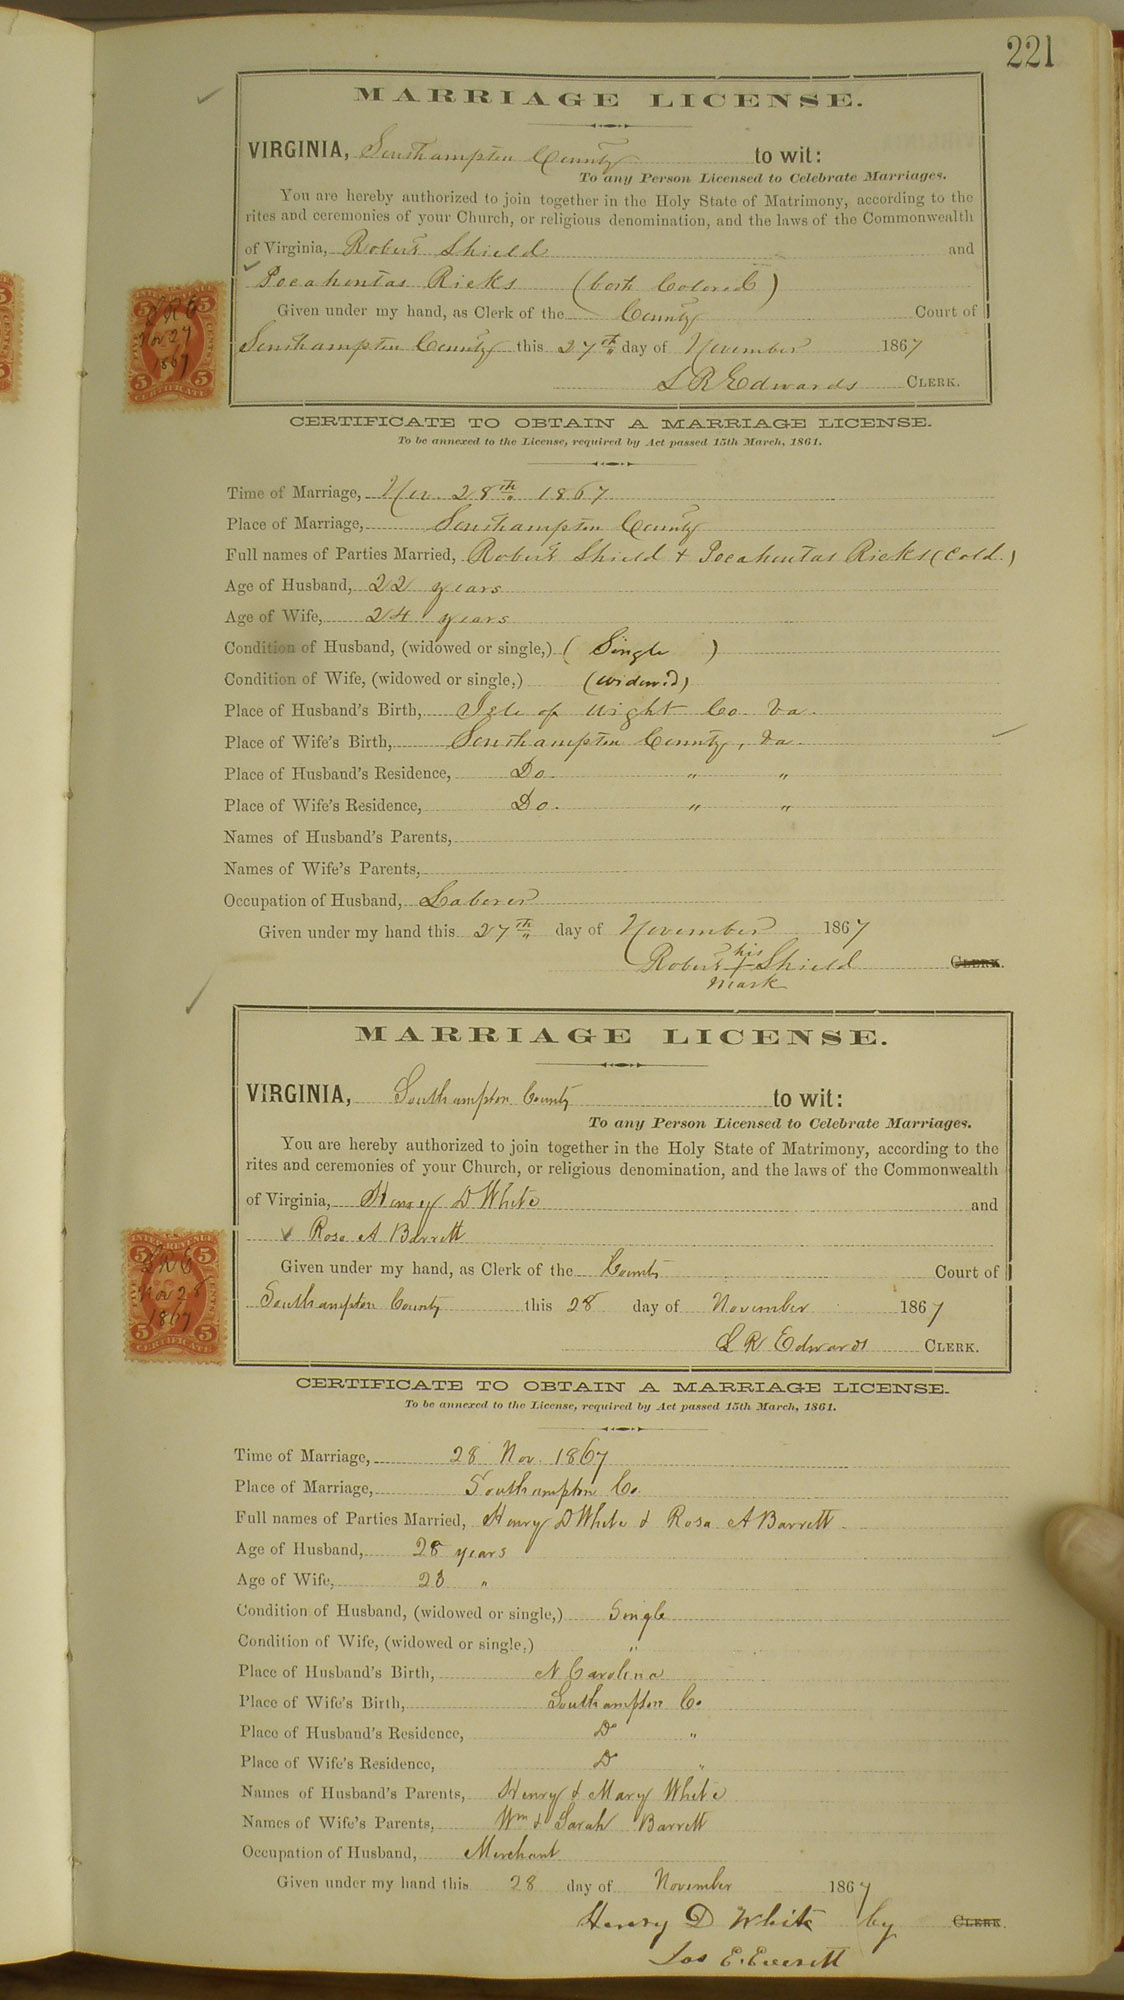 221
MARRIAGE LICENSE.
VIRGINIA, Southampton County to wit:
To any Person Licensed to Celebrate Marriages.
You are hereby authorized to join together in the Holy State of Matrimony, according to the
rites and ceremonies of your Church, or religious denomination, and the laws of the Commonwealth
of Virginia, Robert Shield and
Pocahontas Ricks (both Colored)
Given under my hand, as Clerk of the County Court of
Southampton County this 27th day of November 1867
L R Edwards CLERK.
LRE
Nov 27
1867
CERTIFICATE
CERTIFICATE TO OBTAIN A MARRIAGE LICENSE.
To be annexed to the License, required by Act passed 15th March, 1861.
Time of Marriage, Nov. 28th 1867
Place of Marriage, Southampton County
Full names of Parties Married, Robert Shield & Pocahontas Ricks (Cold.)
Age of Husband, 22 years
Age of Wife, 24 years
Condition of Husband, (widowed or single,) (Single)
Condition of Wife, (widowed or single,) (widow'd)
Place of Husband's Birth, Isle of Wight Co. Va.
Place of Wife's Birth, Southampton County, Va.
Place of Husband's Residence, Do. " "
Place of Wife's Residence, Do. " "
Names of Husband's Parents,
Names of Wife's Parents,
Occupation of Husband, Laborer
Given under my hand this 27th day of November 1867
his
Robert + Shield CLERK.
mark
MARRIAGE LICENSE.
VIRGINIA, Southampton County to wit:
To any Person Licensed to Celebrate Marriages.
You are hereby authorized to join together in the Holy State of Matrimony, according to the
rites and ceremonies of your Church, or religious denomination, and the laws of the Commonwealth
of Virginia, Henry D White and
Rosa A Barrett
Given under my hand, as Clerk of the County Court of
Southampton County this 28 day of November 1867
L R Edwards CLERK.
INTER. REVENUE
LRE
Nov 28
1867
CERTIFICATE
CERTIFICATE TO OBTAIN A MARRIAGE LICENSE.
To be annexed to the License, required by Act passed 15th March, 1861.
Time of Marriage, 28 Nov. 1867
Place of Marriage, Southampton Co.
Full names of Parties Married, Henry D White & Rosa A Barrett
Age of Husband, 28 years
Age of Wife, 23 "
Condition of Husband, (widowed or single,) Single
Condition of Wife, (widowed or single,) "
Place of Husband's Birth, N Carolina
Place of Wife's Birth, Southampton Co
Place of Husband's Residence, Do "
Place of Wife's Residence, Do "
Names of Husband's Parents, Henry & Mary White
Names of Wife's Parents, Wm & Sarah Barrett
Occupation of Husband, Merchant
Given under my hand this 28 day of November 1867
Henry D White by CLERK.
Jos E. Everett